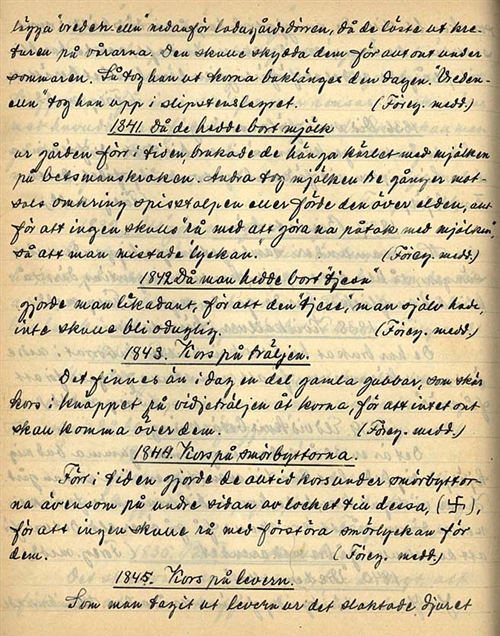 lägga "vredeh-eln" nedanför ladugårdsdörren, då de läste ut kre-
turen på vårarna. Den skulle skydda dem för allt ont under
sommaren. Så tog han ut korna baklänges den dagen. "Vreden-
eln" tog han upp i slipstensleyret. (Föreg. medd.)
1841. Då de hedde bort mjölk
ur gården förr i tiden brukade de hänga kärlet med mjölken
på betsmanskraken. Andra tog mjölken tre gånger mot-
sols omkring spisstolpen eller förde den över elden, allt
för att ingen skulle "rå med att göra na påtak med mjölken",
så att man mistade "lyckan." (Föreg. medd.)
1842 Då man hedde bort "tjese"
gjorde man likadant, för att den "tjese", man själv hade,
inte skulle bli oduglig. (Föreg. medd.)
1843. Kors på träljen.
Det finnes än i dag en del gamla gubbar, som skär
kors i knäppet på vidjeträljen åt korna, för att intet ont
skall komma över dem. (Föreg. medd.)
1844. Kors på smörbyttorna.
Förr i tiden gjorde de alltid kors under smörbyttor-
na ävensom på undre sidan av locket till dessa, (卐),
för att ingen skulle rå med förstöra smörlyckan för
dem. (Föreg. medd.)
1845. Kors på levern.
Som man tagit ut levern ur det slaktade djuret